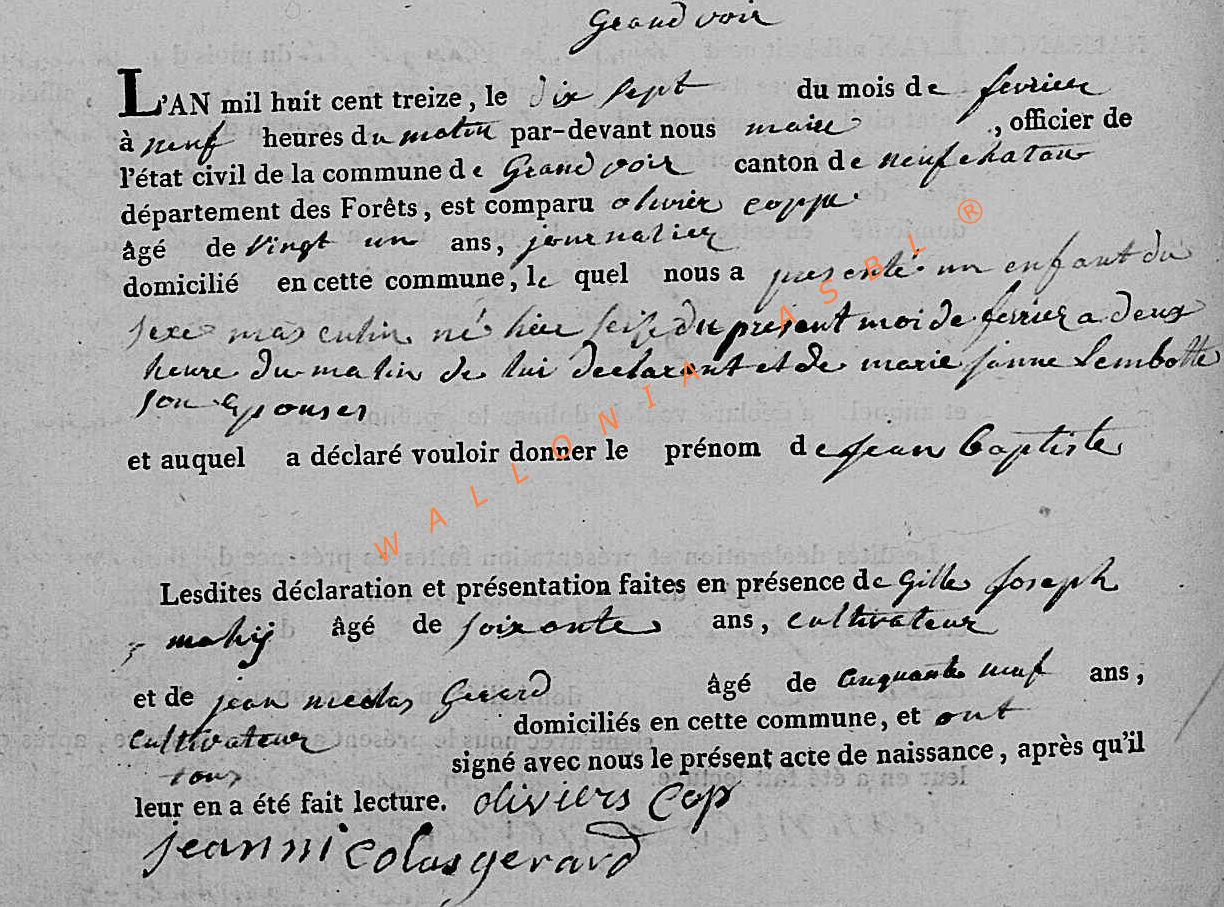 Grandvoir
L'AN mil huit cent treize, le dix sept du mois de fevrier
à neuf heures du matin par-devant nous maire, officier de
l'état civil de la commune de Grandvoir canton de neufchatau
département des Forêts, est comparu olivier coppe
âgé de vingt un ans, journalier
domicilié en cette commune, le quel nous a presenté un enfant du
sexe masculin né hier seise du présent moi de fevrier a deux
heure du matin de lui declarant et de marie janne Lembotte
son Epouser
et auquel a déclaré vouloir donner le prénom de jean baptiste
Lesdites déclaration et présentation faites en présence de Gille Joseph
mahij âgé de soixante ans, cultivateur
et de jean nicolas Gerard âgé de cinquante neuf ans,
cultivateur domiciliés en cette commune, et ont
tous signé avec nous le présent acte de naissance, après qu'il
leur en a été fait lecture. oliviers Cop
jeannicolasgerard
WALLONIA ASBL ®